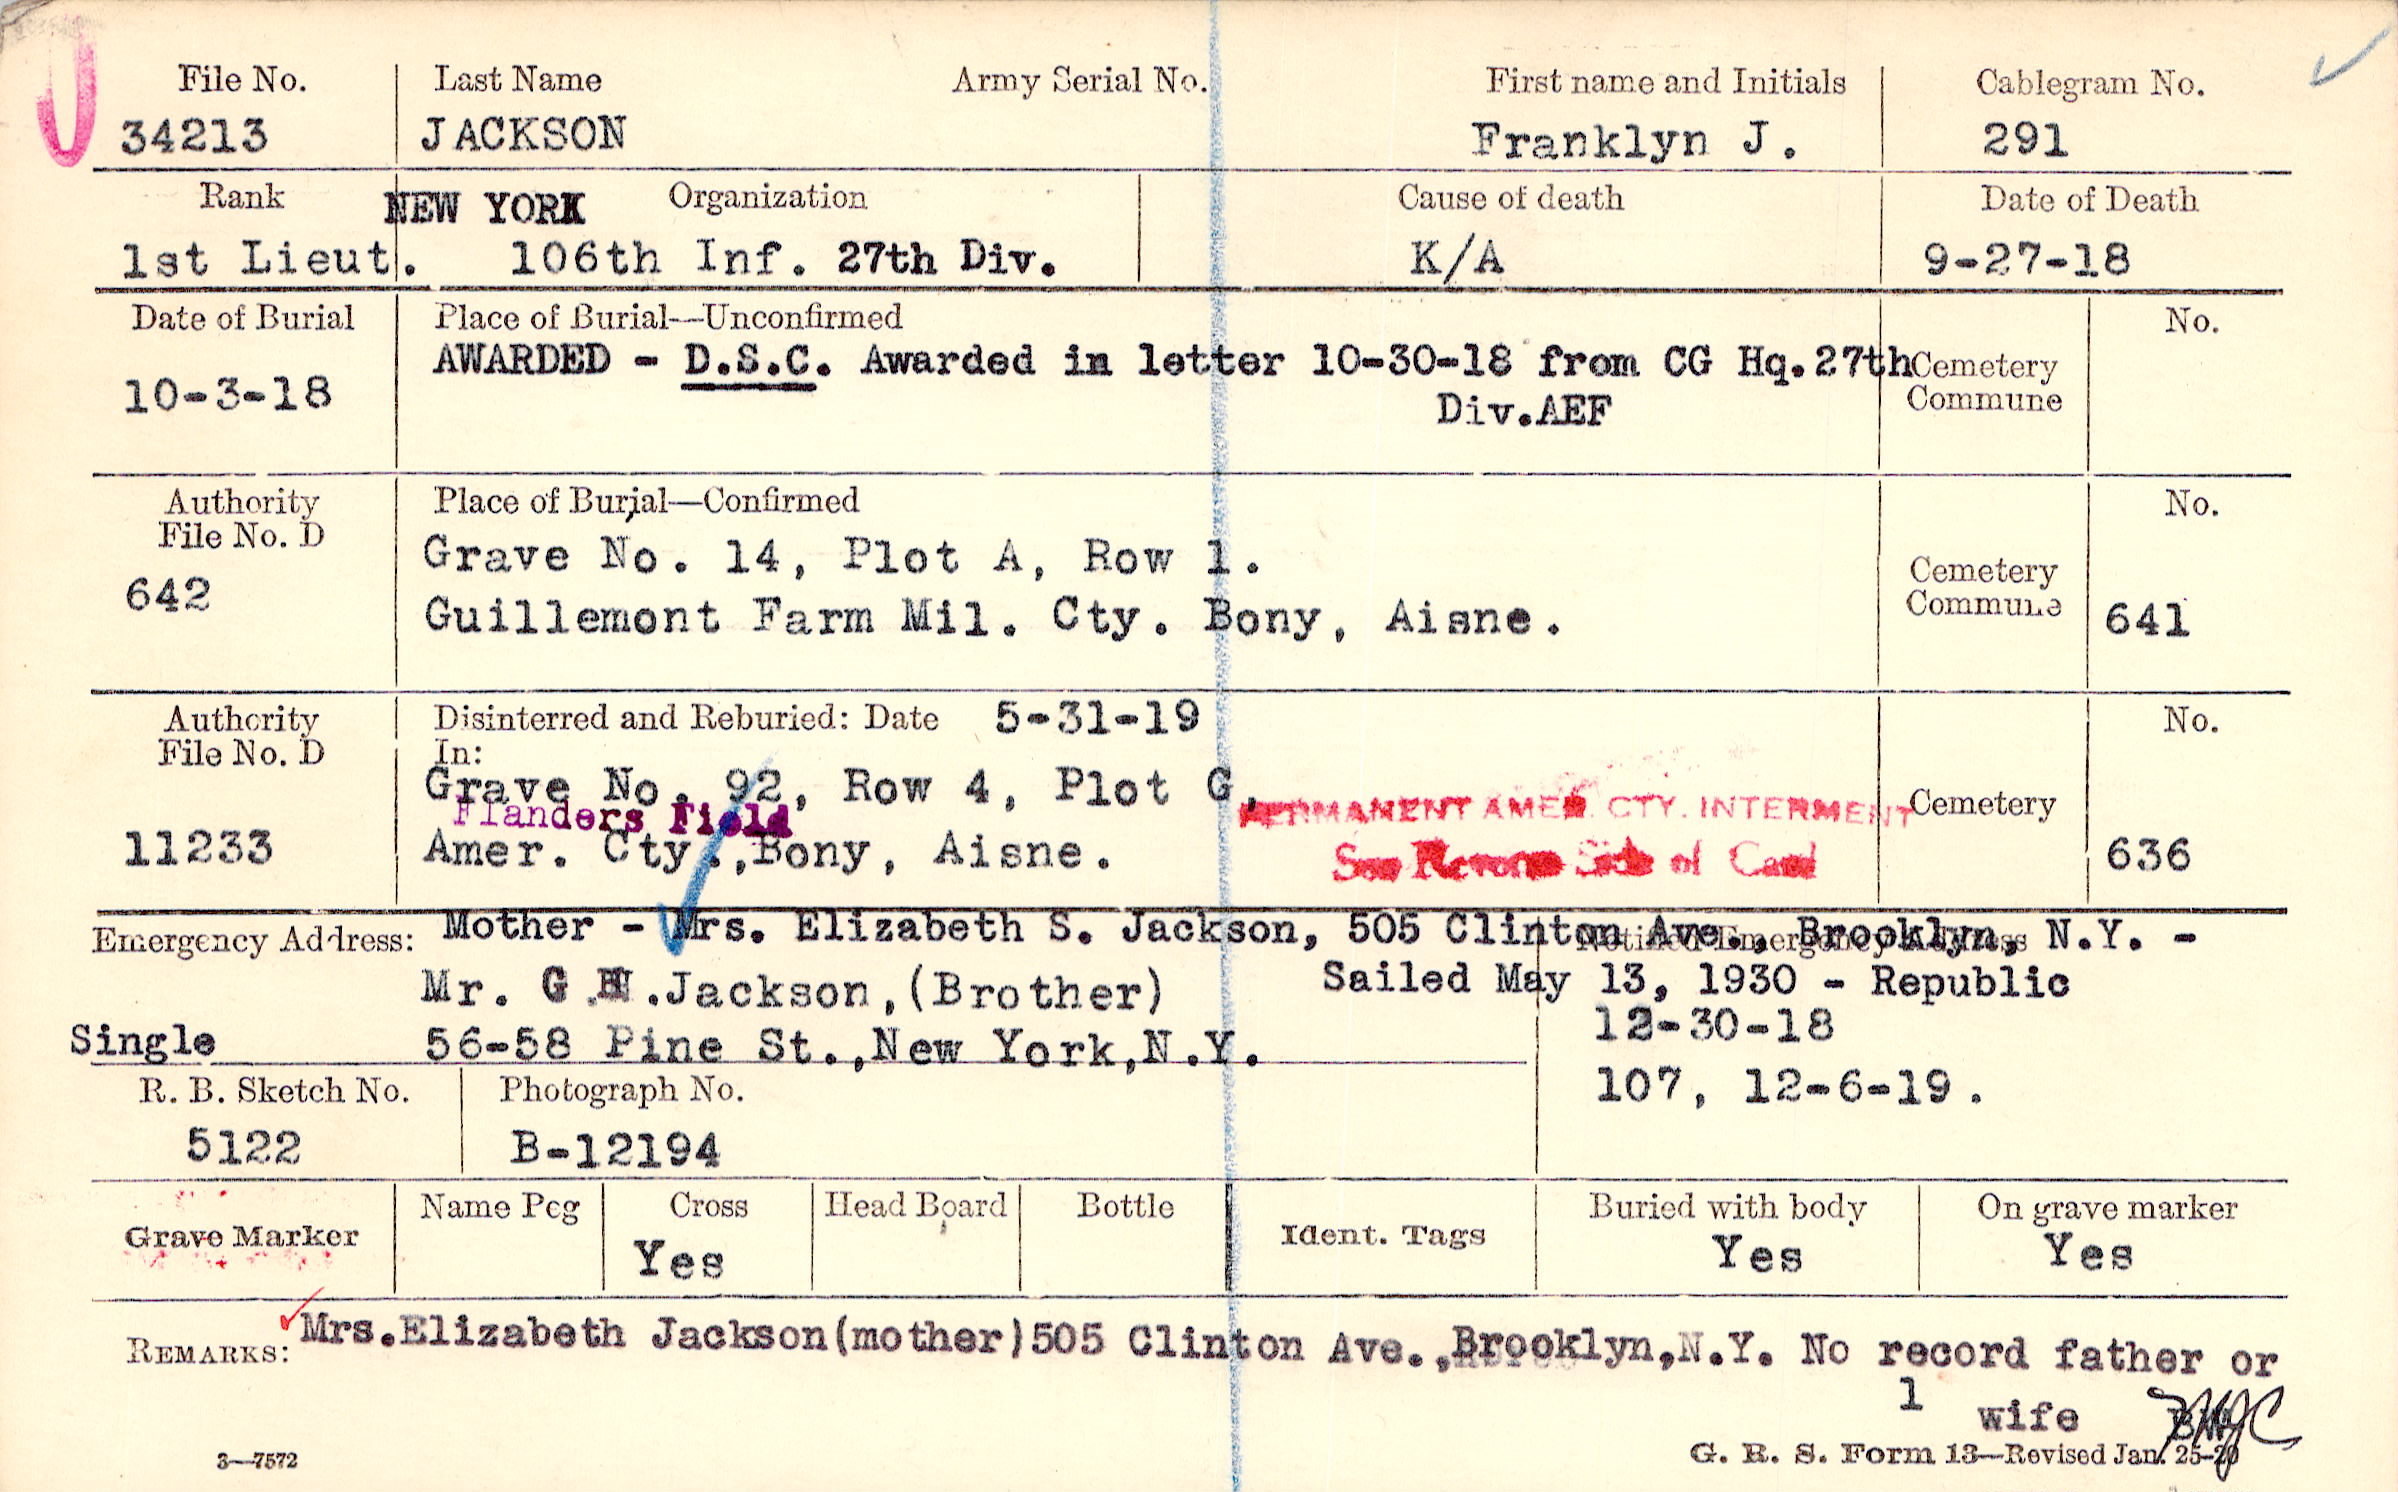 File No. Last Name Army Serial No. First name and Initials Cablegram No.
34213 JACKSON Franklyn J. 291
Rank NEW YORK Organization Cause of death Date of Death
1st Lieut. 106th Inf. 27th Div. K/A 9-27-18
Date of Burial Place of Burial—Unconfirmed No.
AWARDED - D.S.C. Awarded in letter 10-30-18 from CG Hq.27th Cemetery
10-3-18 Div.AEF Commune
Authority Place of Burial—Confirmed No.
File No. D
Grave No. 14, Plot A, Row 1. Cemetery
642 Commune
Guillemont Farm Mil. Cty. Bony, Aisne. 641
Authority Disinterred and Reburied: Date 5-31-19 No.
File No. D In:
Grave No. 92, Row 4, Plot G,
Flanders Field PERMANENT AMER. CTY. INTERMENT Cemetery
11233 Amer. Cty.,Bony, Aisne. See Reverse Side of Card 636
Emergency Address: Mother - Mrs. Elizabeth S. Jackson, 505 Clinton Ave., Brooklyn, N.Y. -
Notified Emergency Address
Mr. G .Jackson,(Brother) Sailed May 13, 1930 - Republic
12-30-18
Single 56-58 Pine St.,New York,N.Y.
R. B. Sketch No. Photograph No. 107, 12-6-19.
5122 B-12194
Grave Marker Name Peg Cross Head Board Bottle Ident. Tags Buried with body On grave marker
Yes Yes Yes
REMARKS: Mrs.Elizabeth Jackson(mother)505 Clinton Ave.,Brooklyn,N.Y. No record father or
1 wife
3—7572 G. R. S. Form 13—Revised Jan. 25-20